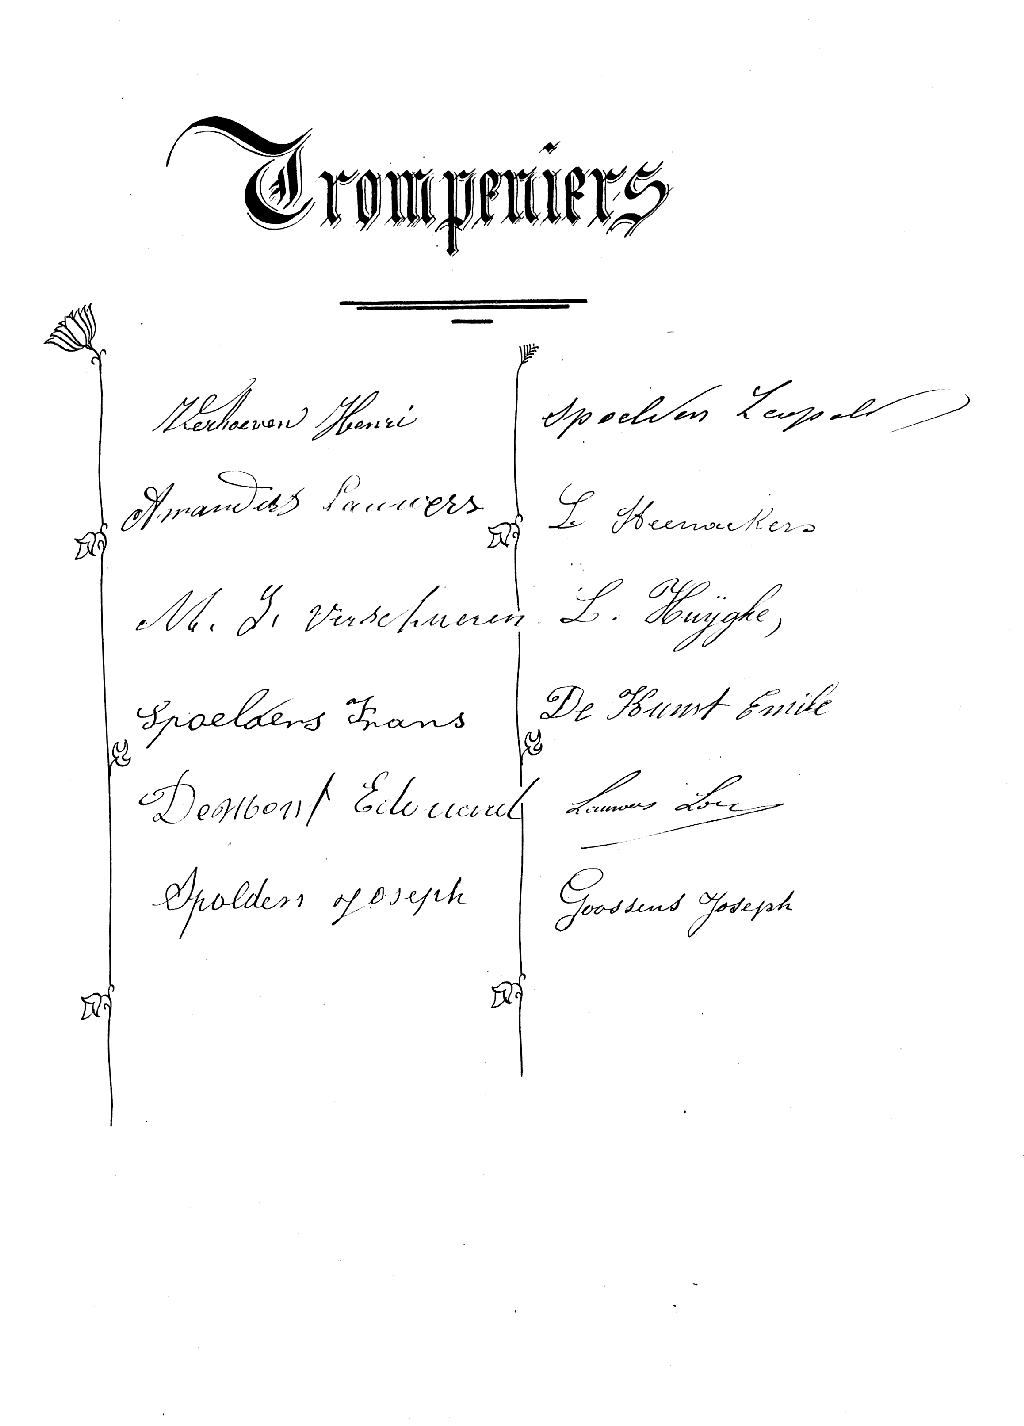 Trompeniers
Verhoeven Henri
Amandus Lauwers
M. J. Verschueren
Spoelders Frans
Desmont Edouard
Spolders Joseph
Spoelders Leopold
L Heenackers
L. Huÿghe,
De Kunst Emile
Lauwers
Goossens Joseph